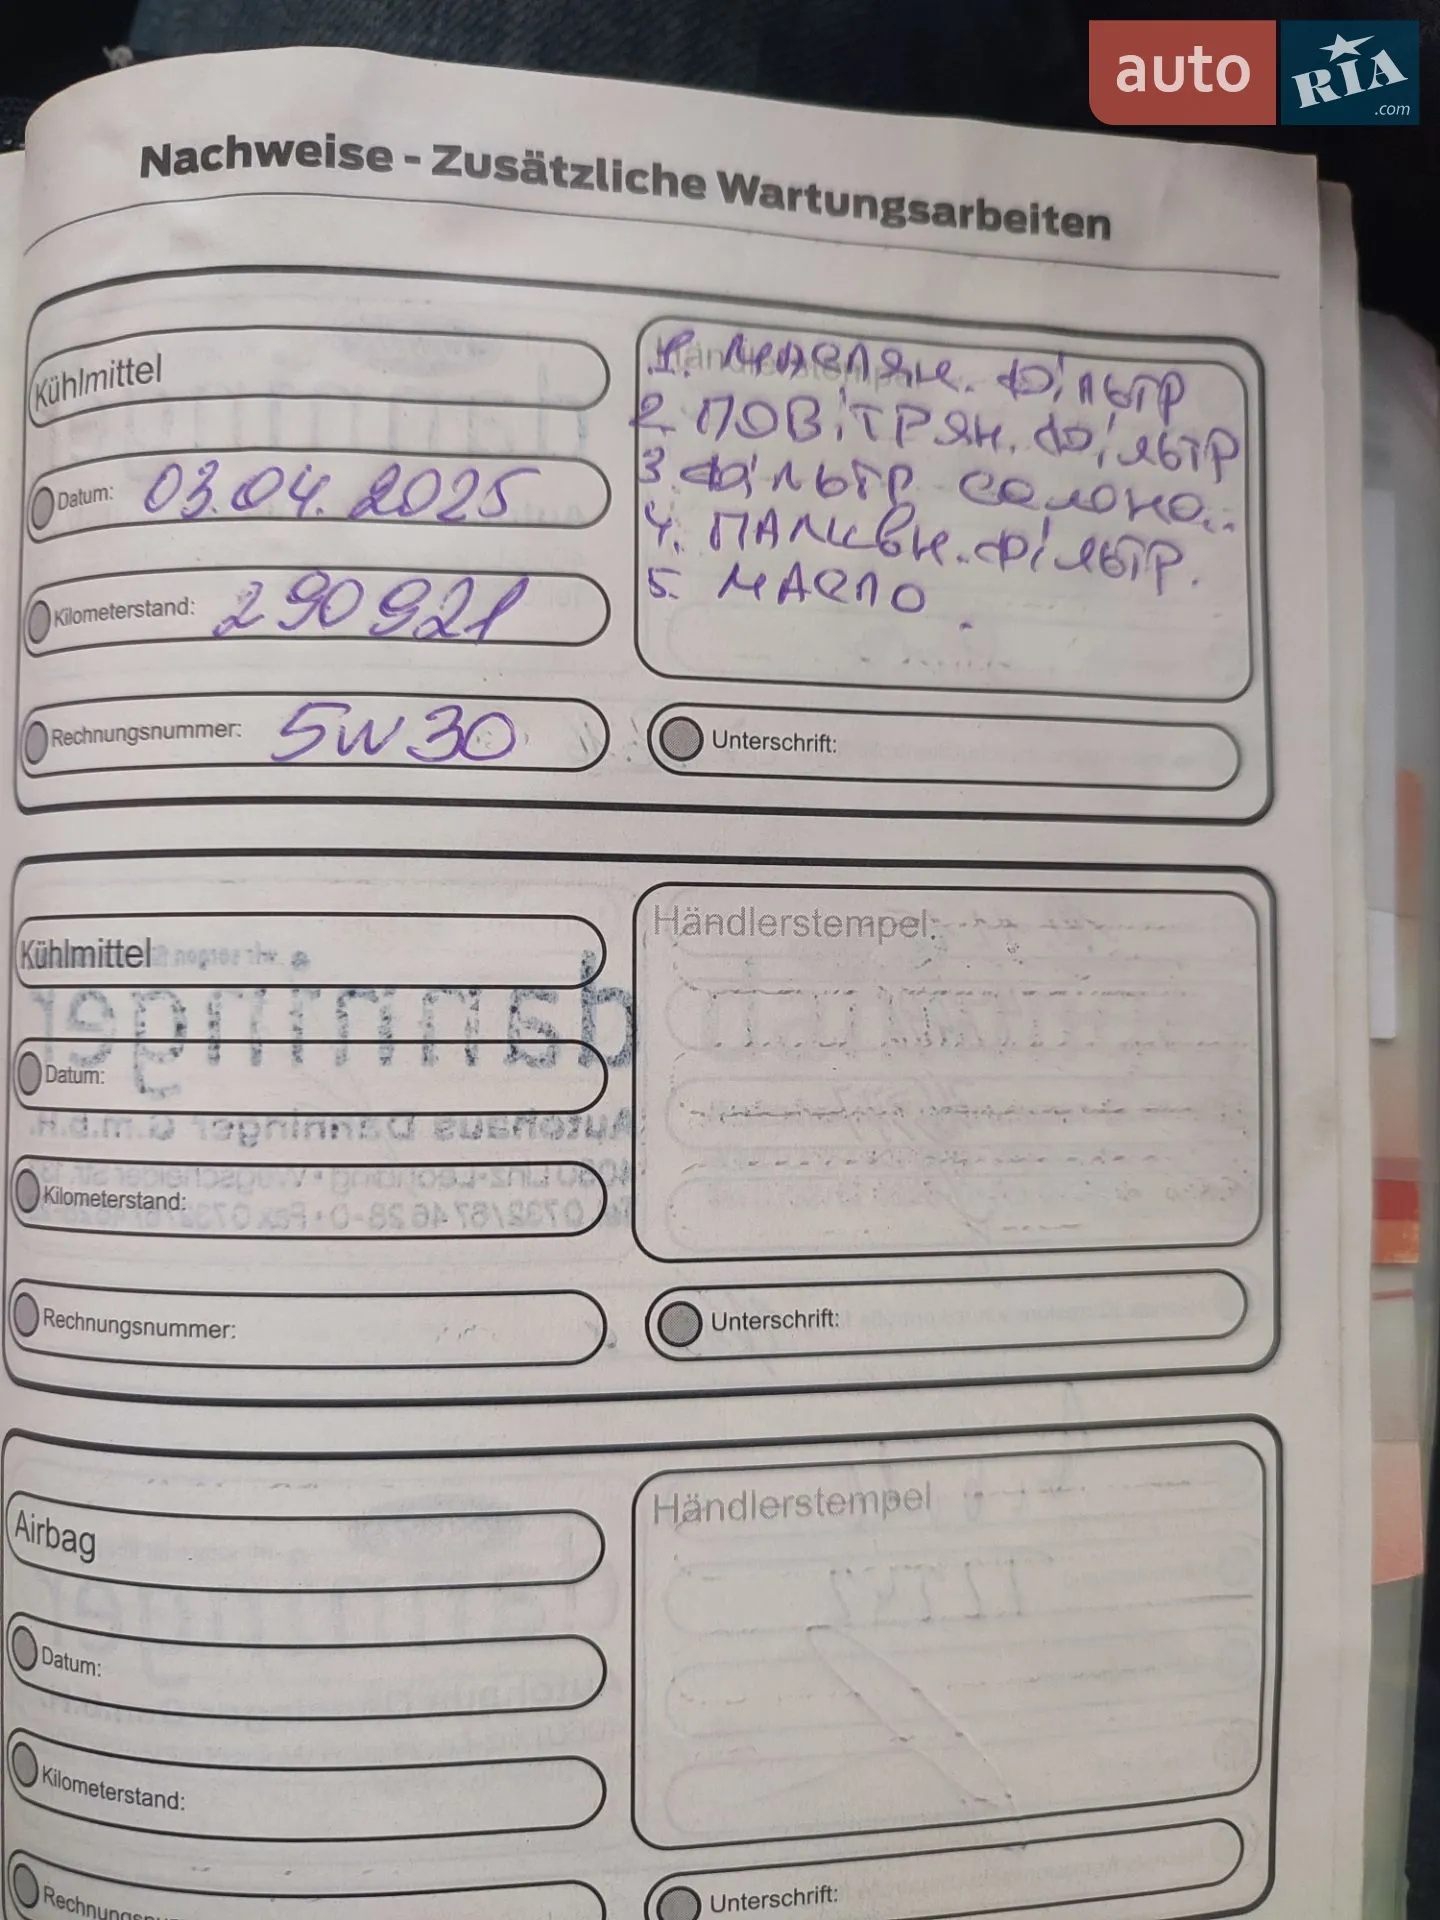 auto RIA .com
Nachweise - Zusätzliche Wartungsarbeiten
Kühlmittel
Datum: 03.04.2025
Kilometerstand: 290921
Rechnungsnummer: 5W30
1. Маслян. фільтр
2 ПОВітРЯН. фільтр
3. фільтр салона..
4. ПАЛИВН. фільтр.
5. МАСЛО.
Unterschrift:
Kühlmittel
Datum:
Kilometerstand:
Rechnungsnummer:
Händlerstempel:
Unterschrift:
danninger
Autohaus Danninger G.m.b.H.
Airbag
Datum:
Kilometerstand:
Händlerstempel
Unterschrift: